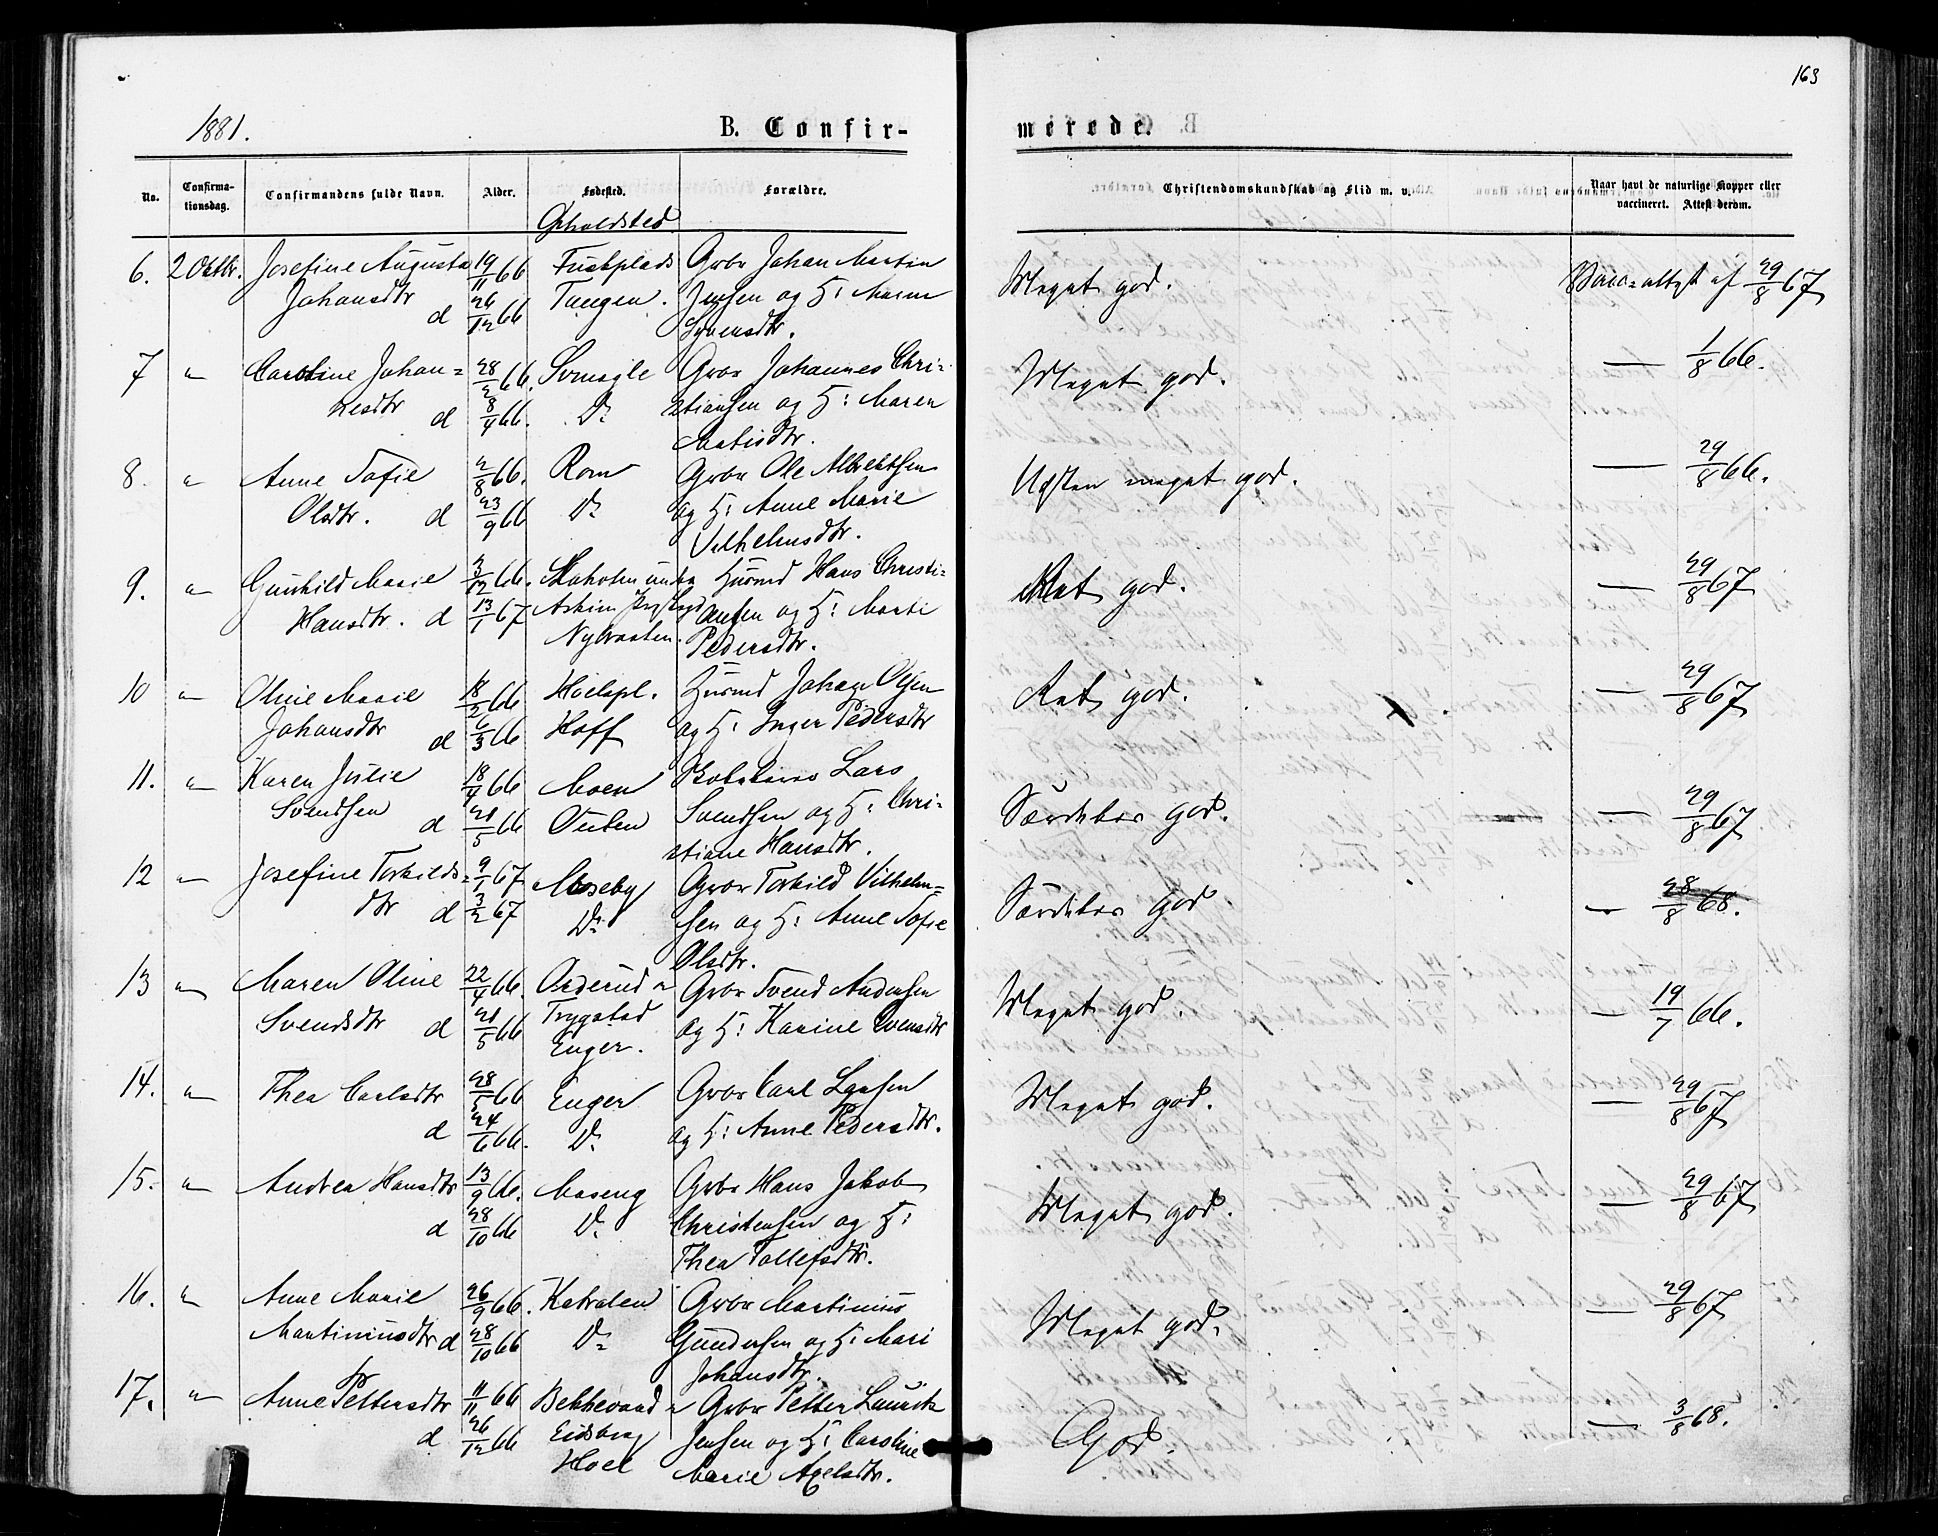 163
1881.
B. Confir-
merede.
No.
Confirma-
tionsdag.
Confirmandens fulde Navn.
Alder.
Fødested.
Opholdsted
Forældre.
Christendomskundskab og Flid m. v.
Naar havt de naturlige Kopper eller
vaccineret. Attest derom.
6. 2 Oktbr. Josefine Augusta 19/11 66 Gbr Johan Martin
Johansdtr d 26/12 66 Tangen. Jensen og H: Maren
Svensdtr.
Meget god. Vacc. attest af 29/8 67
7 " Caroline Johan= 28/2 66. Gbr Johannes Chri-
nesdtr d 8/4 66. Do stiansen og H: Maren
Matisdtr.
Meget god. — 1/8 66.
8. " Anne Sofie 2/8 66. Rom Gbr Ole Albretsen
Olsdtr. d 23/9 66 Do og H: Anne Marie
Vilhelmsdtr.
Næsten meget god. — 29/8 66.
9. " Gunhild Marie 3/12 66. Husmd Hans Christi-
Hansdtr. d 13/1 67 Askim ansen og H: Marte
Pedersdtr.
Met god. — 29/8 67
10 " Oline Marie 18/2 66 Hoelspl. Husmd Johan Olsen
Johansdtr d 6/3 66 Hoff og H: Inger Pedersdtr
Ret god. — 29/8 67
11. " Karen Julie 18/4 66 Moen Lars
Svendsen d 20/5 66 Svendsen og H: Chri-
stiane Hansdtr.
Særdeles god. — 29/8 67
12 " Josefine Torkilds= 9/1 67 Moseby Gbr Torkild Vilhelm=
dtr d 3/2 67 Do sen og H: Anne Sofie
Olsdtr.
Særdeles god — 28/8 68.
13 " Maren Oline 22/4 66. Orderud i Gbr Svend Andersen
Svendsdtr d 20/5 66 Trygstad og H: Karine Evensdtr
Enger.
Meget god. — 19/7 66.
14. " Thea Carlsdtr 28/5 66 Enger Gbr Carl Larsen
d 24/6 66. Do og H: Anne Pedersdtr.
Meget god. — 29/8 67
15. " Andrea Hansdtr 13/9 66. Moseng Gbr Hans Jakob
d 28/10 66 Do Christensen og H:
Thea Tollefsdtr.
Meget god. — 29/8 67
16. " Anne Marie 26/9 66. Katralen Gbr Martinius
Martiniusdtr d 28/10 66 Do Gundersen og H: Mari
Johansdtr.
Meget god. — 29/8 67
17. " Anne Pettersdtr 11/11 66 Bekkevand i Gbr Petter Lauritz
d 26/12 66 Eidsberg Jensen og H: Caroline
Hoel Marie Axelsdtr.
God. — 3/8 68.